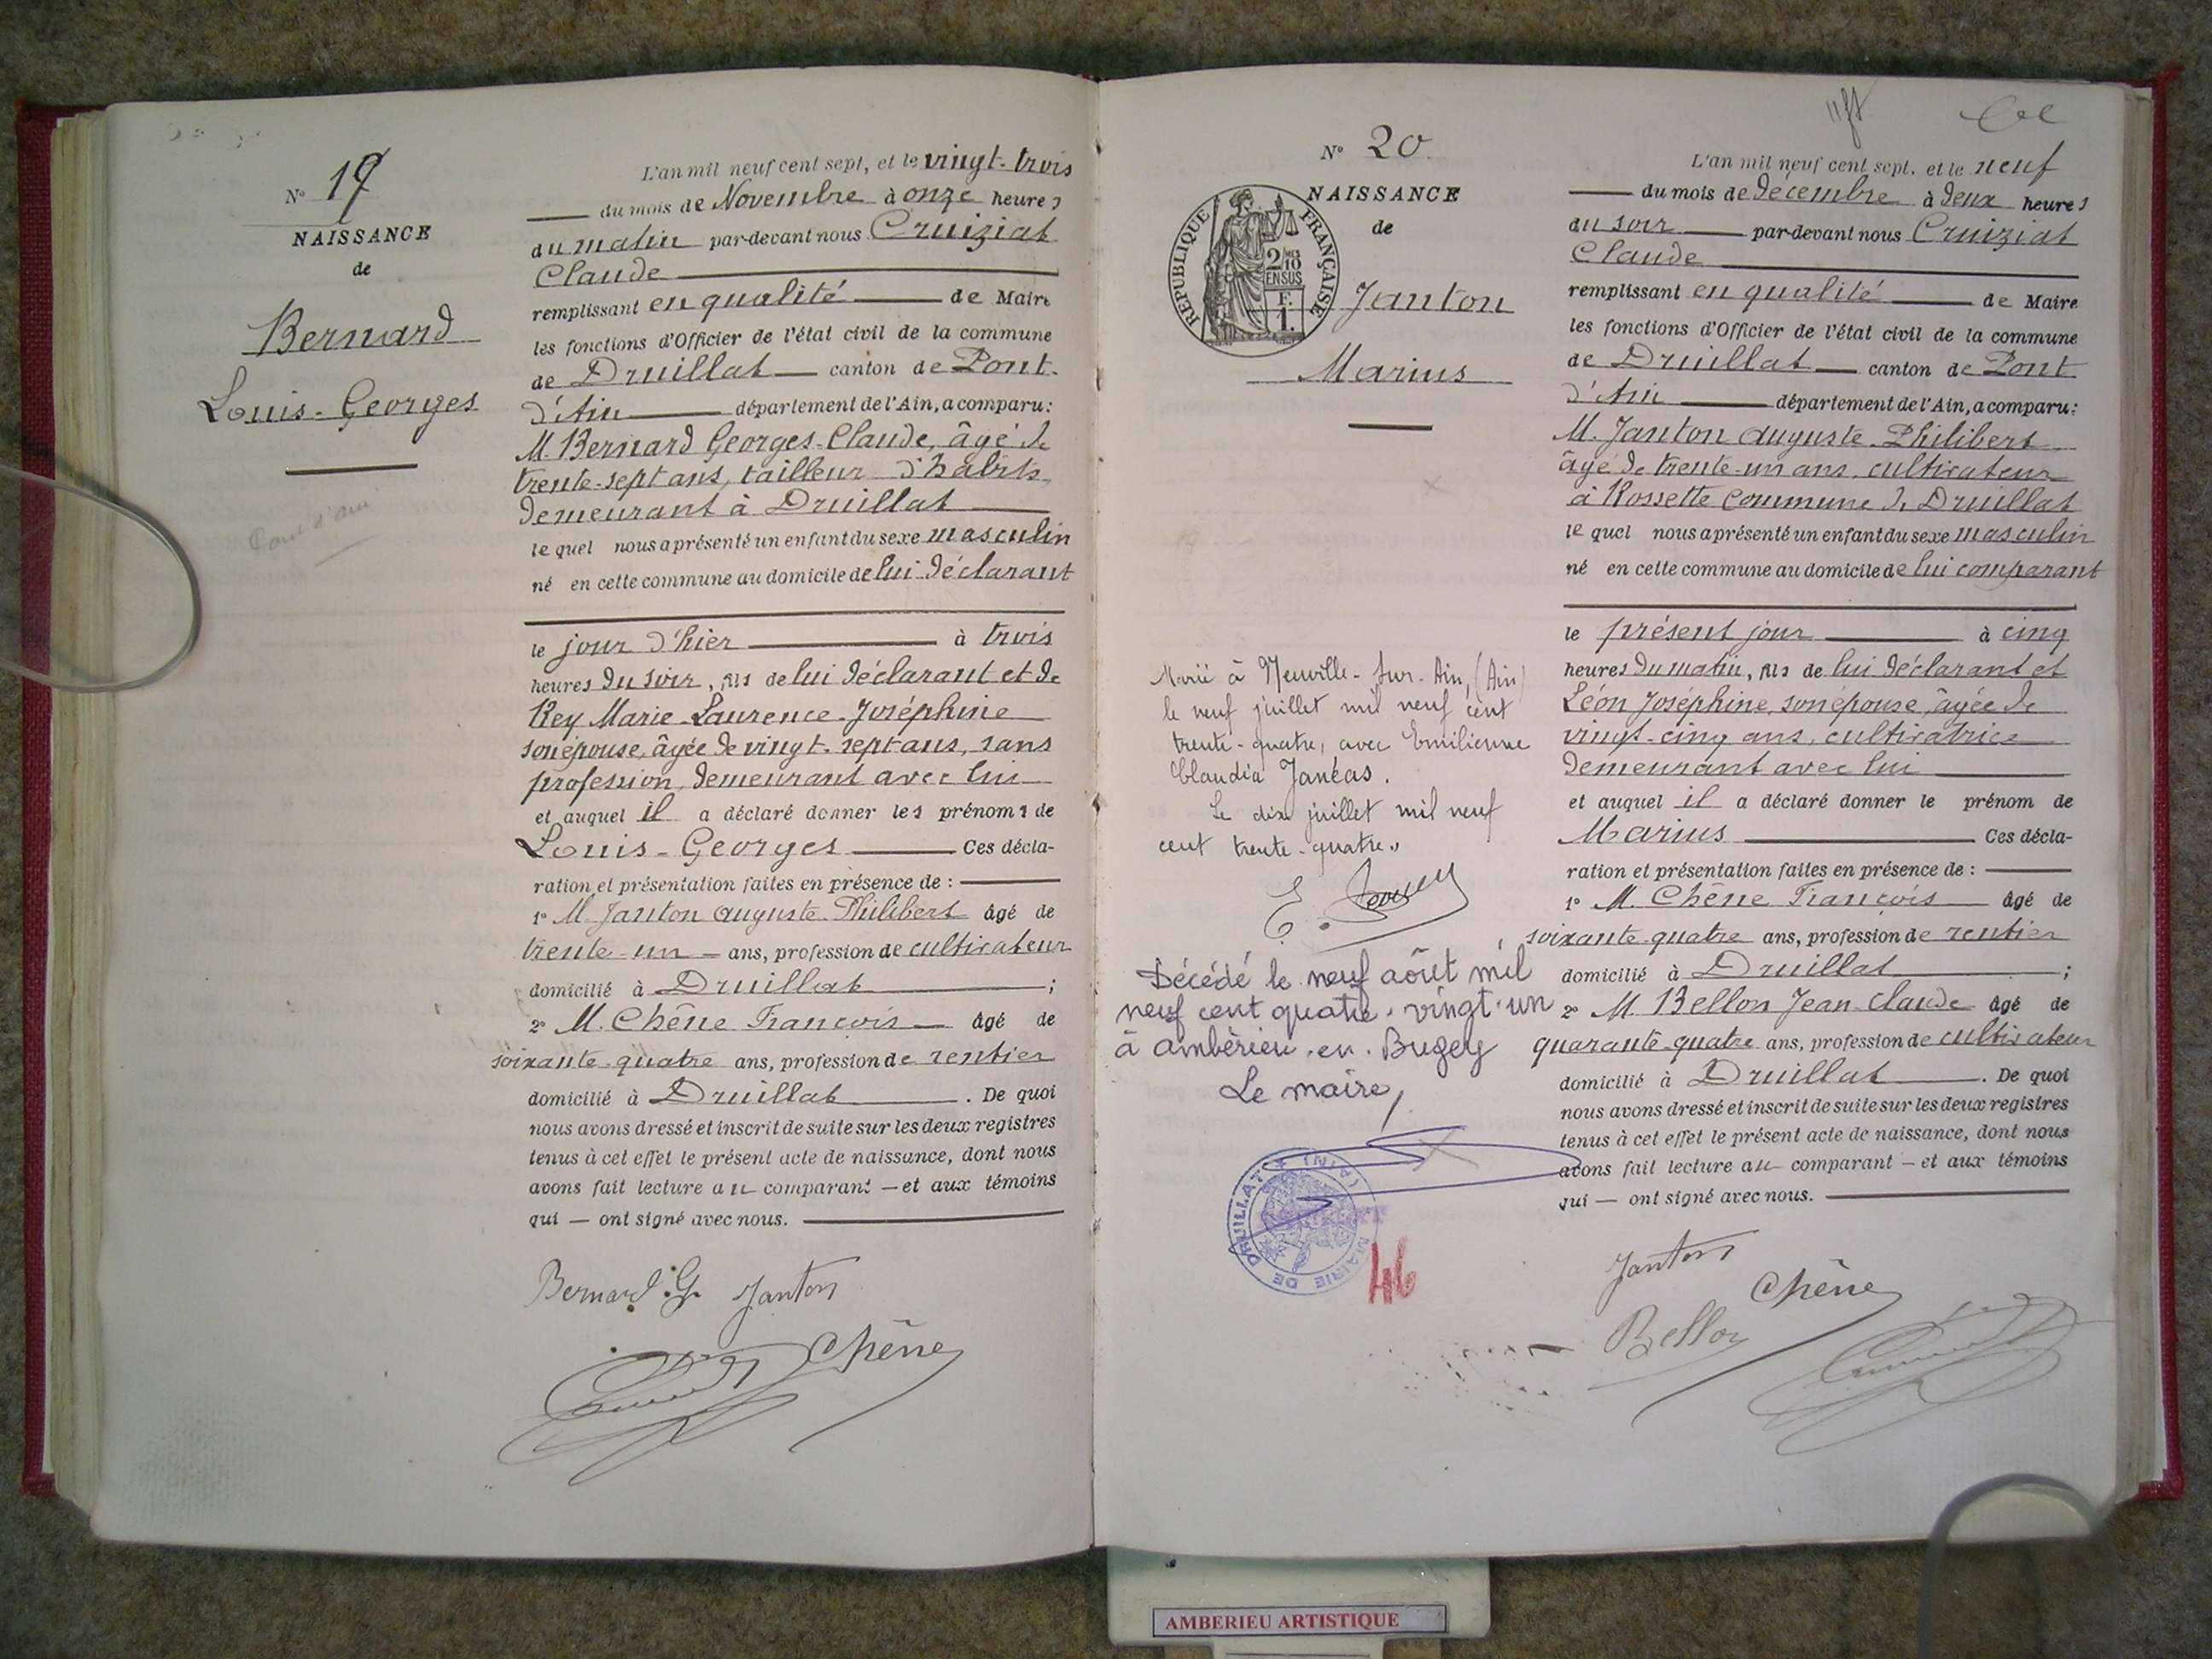 N° 19
NAISSANCE
de
Bernard
Louis-Georges
L'an mil neuf cent sept, et le vingt-trois
du mois de Novembre à onze heures
du matin par-devant nous Cruiziat
Claude
remplissant en qualité de Maire
les fonctions d'Officier de l'état civil de la commune
de Druillat canton de Pont-
d'Ain département de l'Ain, a comparu:
M. Bernard Georges-Claude, âgé de
trente-sept ans, tailleur d'habits,
demeurant à Druillat
le quel nous a présenté un enfant du sexe masculin
né en cette commune au domicile de lui déclarant
le jour d'hier à trois
heures du soir, fils de lui déclarant et de
Rey Marie-Laurence-Joséphine
son épouse, âgée de vingt-sept ans, sans
profession, demeurant avec lui
et auquel il a déclaré donner les prénoms de
Louis-Georges Ces décla-
ration et présentation faites en présence de :
1° M. Janton Auguste-Philibert âgé de
trente-un ans, profession de cultivateur
domicilié à Druillat ;
2° M. Chêne François âgé de
soixante-quatre ans, profession de rentier
domicilié à Druillat . De quoi
nous avons dressé et inscrit de suite sur les deux registres
tenus à cet effet le présent acte de naissance, dont nous
avons fait lecture au comparant — et aux témoins
qui — ont signé avec nous.
Bernard G. Janton
Chêne
N° 20
NAISSANCE
de
RÉPUBLIQUE FRANÇAISE
2/10
EN SUS
F.
1.
Janton
Marius
Marié à Neuville-sur-Ain, (Ain)
le neuf juillet mil neuf cent
trente-quatre, avec Emilienne
Claudia Janéas.
Le dix juillet mil neuf
cent trente-quatre.
Décédé le neuf août mil
neuf cent quatre-vingt-un
à Ambérieu-en-Bugey
Le maire,
MAIRIE DE DRUILLAT (AIN)
46
L'an mil neuf cent sept, et le neuf
du mois de décembre à deux heures
du soir par-devant nous Cruiziat
Claude
remplissant en qualité de Maire
les fonctions d'Officier de l'état civil de la commune
de Druillat canton de Pont
d'Ain département de l'Ain, a comparu:
M. Janton Auguste-Philibert
âgé de trente-un ans, cultivateur
à Rossette commune de Druillat
le quel nous a présenté un enfant du sexe masculin
né en cette commune au domicile de lui comparant
le présent jour à cinq
heures du matin, fils de lui déclarant et
Léon Joséphine, son épouse, âgée de
vingt-cinq ans, cultivatrice
demeurant avec lui
et auquel il a déclaré donner le prénom de
Marius Ces décla-
ration et présentation faites en présence de :
1° M. Chêne François âgé de
soixante-quatre ans, profession de rentier
domicilié à Druillat ;
2° M. Bellon Jean-Claude âgé de
quarante-quatre ans, profession de cultivateur
domicilié à Druillat . De quoi
nous avons dressé et inscrit de suite sur les deux registres
tenus à cet effet le présent acte de naissance, dont nous
avons fait lecture au comparant — et aux témoins
qui — ont signé avec nous.
Janton
Chêne
Bellon
AMBERIEU ARTISTIQUE